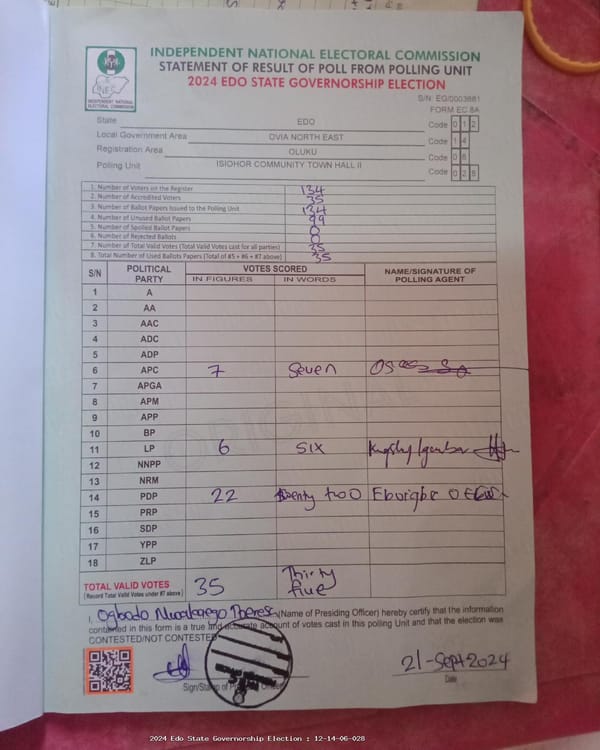 INDEPENDENT NATIONAL ELECTORAL COMMISSION
STATEMENT OF RESULT OF POLL FROM POLLING UNIT
2024 EDO STATE GOVERNORSHIP ELECTION
INEC
INDEPENDENT NATIONAL ELECTORAL COMMISSION
S/N: EG/0003881
FORM EC 8A
State EDO Code 0 1 2
Local Government Area OVIA NORTH EAST Code 1 4
Registration Area OLUKU Code 0 6
Polling Unit ISIOHOR COMMUNITY TOWN HALL II Code 0 2 8
1. Number of Voters on the Register 134
2. Number of Accredited Voters 35
3. Number of Ballot Papers Issued to the Polling Unit 134
4. Number of Unused Ballot Papers 99
5. Number of Spoiled Ballot Papers 0
6. Number of Rejected Ballots 0
7. Number of Total Valid Votes (Total Valid Votes cast for all parties) 35
8. Total Number of Used Ballots Papers (Total of #5 + #6 + #7 above) 35
S/N POLITICAL PARTY VOTES SCORED NAME/SIGNATURE OF POLLING AGENT
IN FIGURES IN WORDS
1 A
2 AA
3 AAC
4 ADC
5 ADP
6 APC 7 Seven
7 APGA
8 APM
9 APP
10 BP
11 LP 6 SIX
12 NNPP
13 NRM
14 PDP 22 twenty two Eboigbe
15 PRP
16 SDP
17 YPP
18 ZLP
TOTAL VALID VOTES 35 Thirty five
(Record Total Valid Votes under #7 above)
I, Ogbodo Therese (Name of Presiding Officer) hereby certify that the information
contained in this form is a true and accurate account of votes cast in this polling Unit and that the election was
CONTESTED/NOT CONTESTED
21-Sept 2024
Sign/Stamp of Date
2024 Edo State Governorship Election : 12-14-06-028